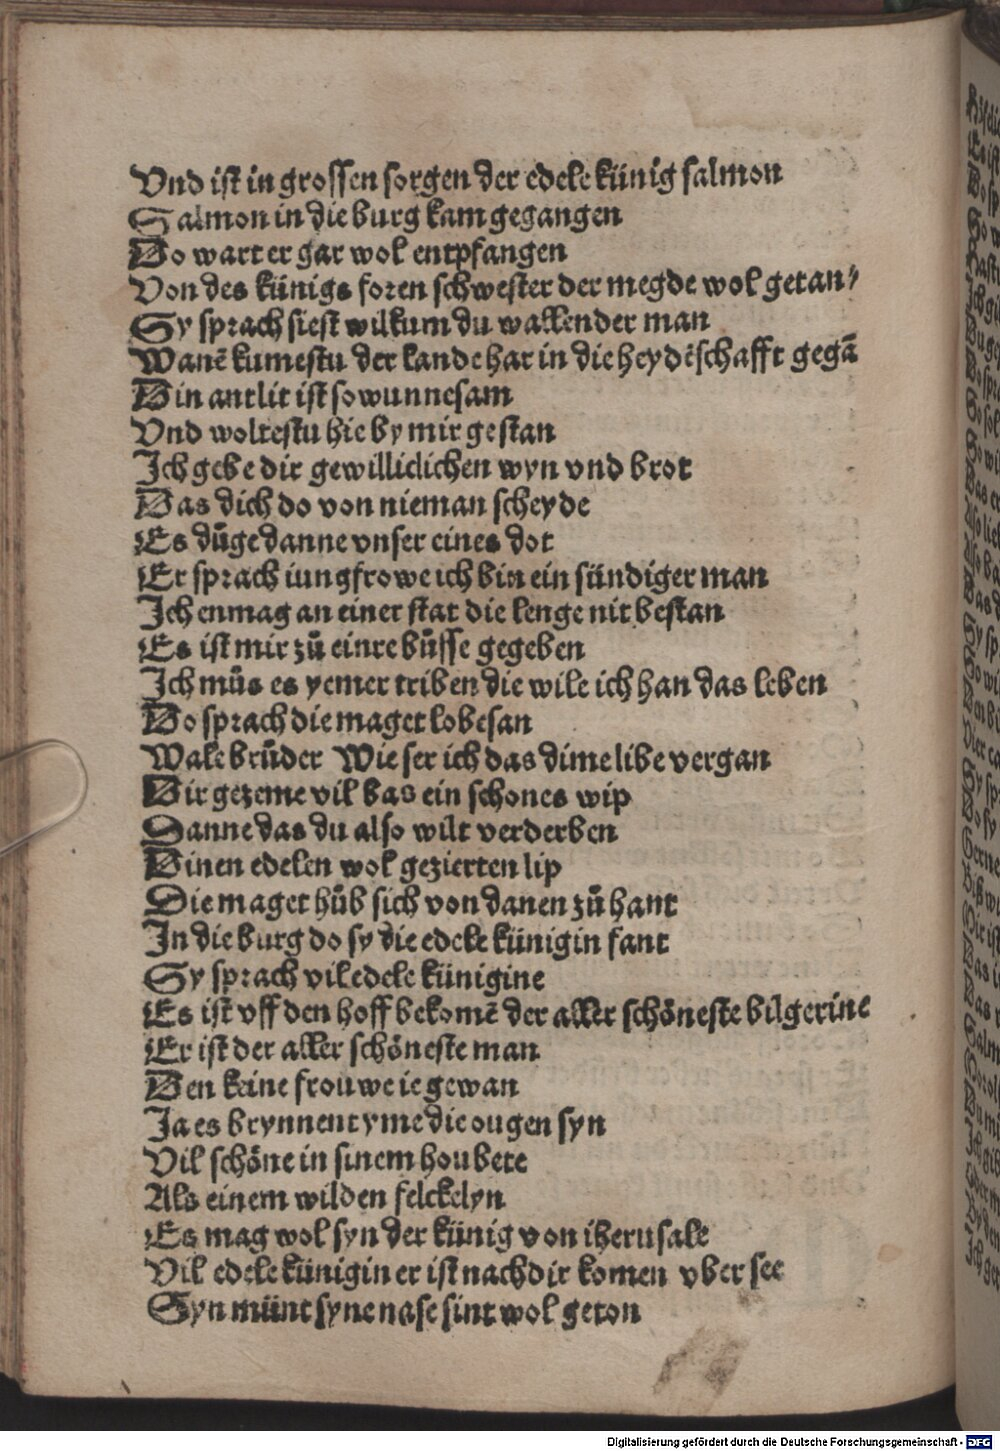 Vnd ist in grossen sorgen der edele künig salmon
Salmon in die burg kam gegangen
Do wart er gar wol entpfangen
Von des künigs foren schwester der megde wol getan
Sy sprach siest wilkum du wallender man
Wanē kumestu der lande har in die heydēschafft gegā
Din antlit ist so wunnesam
Vnd woltestu hie by mir gestan
Ich gebe dir gewilliclichen wyn vnd brot
Das dich do von nieman scheyde
Es dūge danne vnser eines dot
Er sprach iungfrowe ich bin ein sündiger man
Ich enmag an einer stat die lenge nit bestan
Es ist mir zů einre bůsse gegeben
Ich můs es yemer triben die wile ich han das leben
Do sprach die maget lobesan
Wale brůder Wie ser ich das dime libe vergan
Dir gezeme vil bas ein schones wip
Danne das du also wilt verderben
Dinen edelen wol gezierten lip
Die maget hůb sich von danen zů hant
In die burg do sy die edele künigin fant
Sy sprach vil edele künigine
Es ist vff den hoff bekomē der aller schöneste bilgerine
Er ist der aller schöneste man
Den keine frouwe ie gewan
Ja es brynnent yme die ougen syn
Vil schöne in sinem houbete
Als einem wilden felckelyn
Es mag wol syn der künig von iherusale
Vil edele künigin er ist nach dir komen vber see
Syn münt syne nase sint wol geton
Digitalisierung gefördert durch die Deutsche Forschungsgemeinschaft - DFG